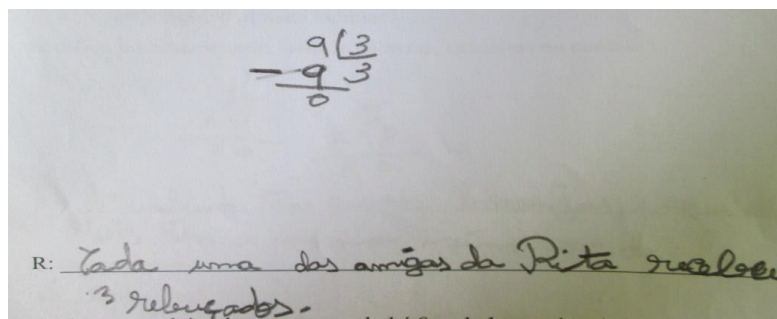 9 3
- 9 3
0
R: Cada uma das amigas da Rita recebeu
3 rebuçados.